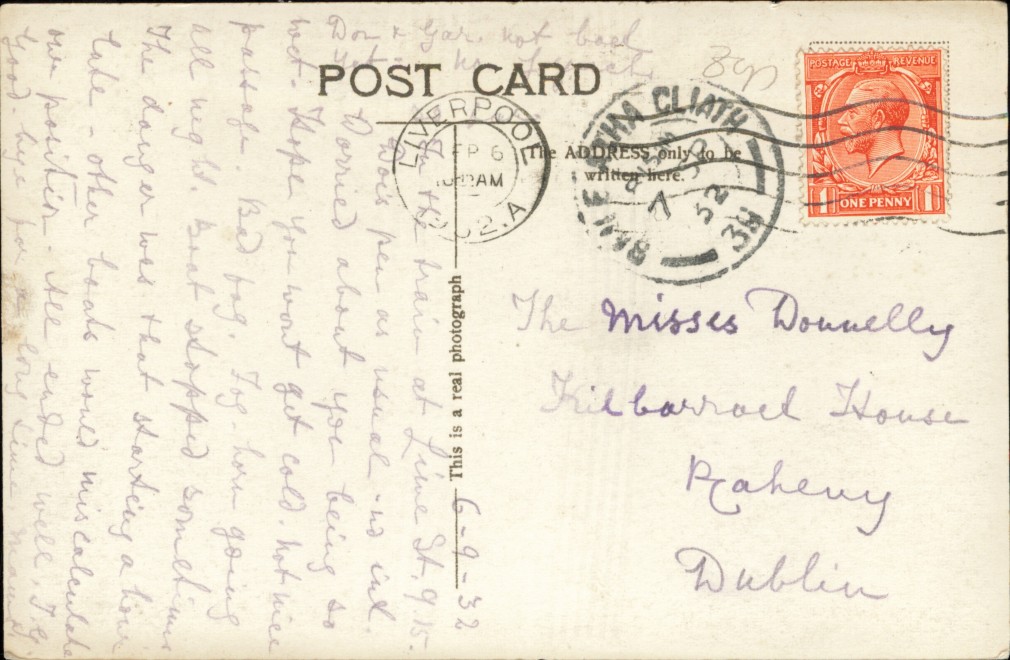 POST CARD
This is a real photograph
The ADDRESS only to be
written here.
LIVERPOOL
6
AM
BAILE ATHA CLIATH
7
32
38
POSTAGE REVENUE
1 ONE PENNY 1
The Misses Donnelly
Kilbarrack House
Raheny
Dublin
6-9-32
In the train at Lime St. 9.15.
pen as usual - no ink.
Worried about you being so
wet. Hope you wont get cold. Not nice
passage. Bad fog. Fog-horn going
all night. Boat stopped sometimes
The danger was that starting a hour
late - other boats would miscalculate
our position. All ended well. T.G.
Good bye for a long time
not back
yet